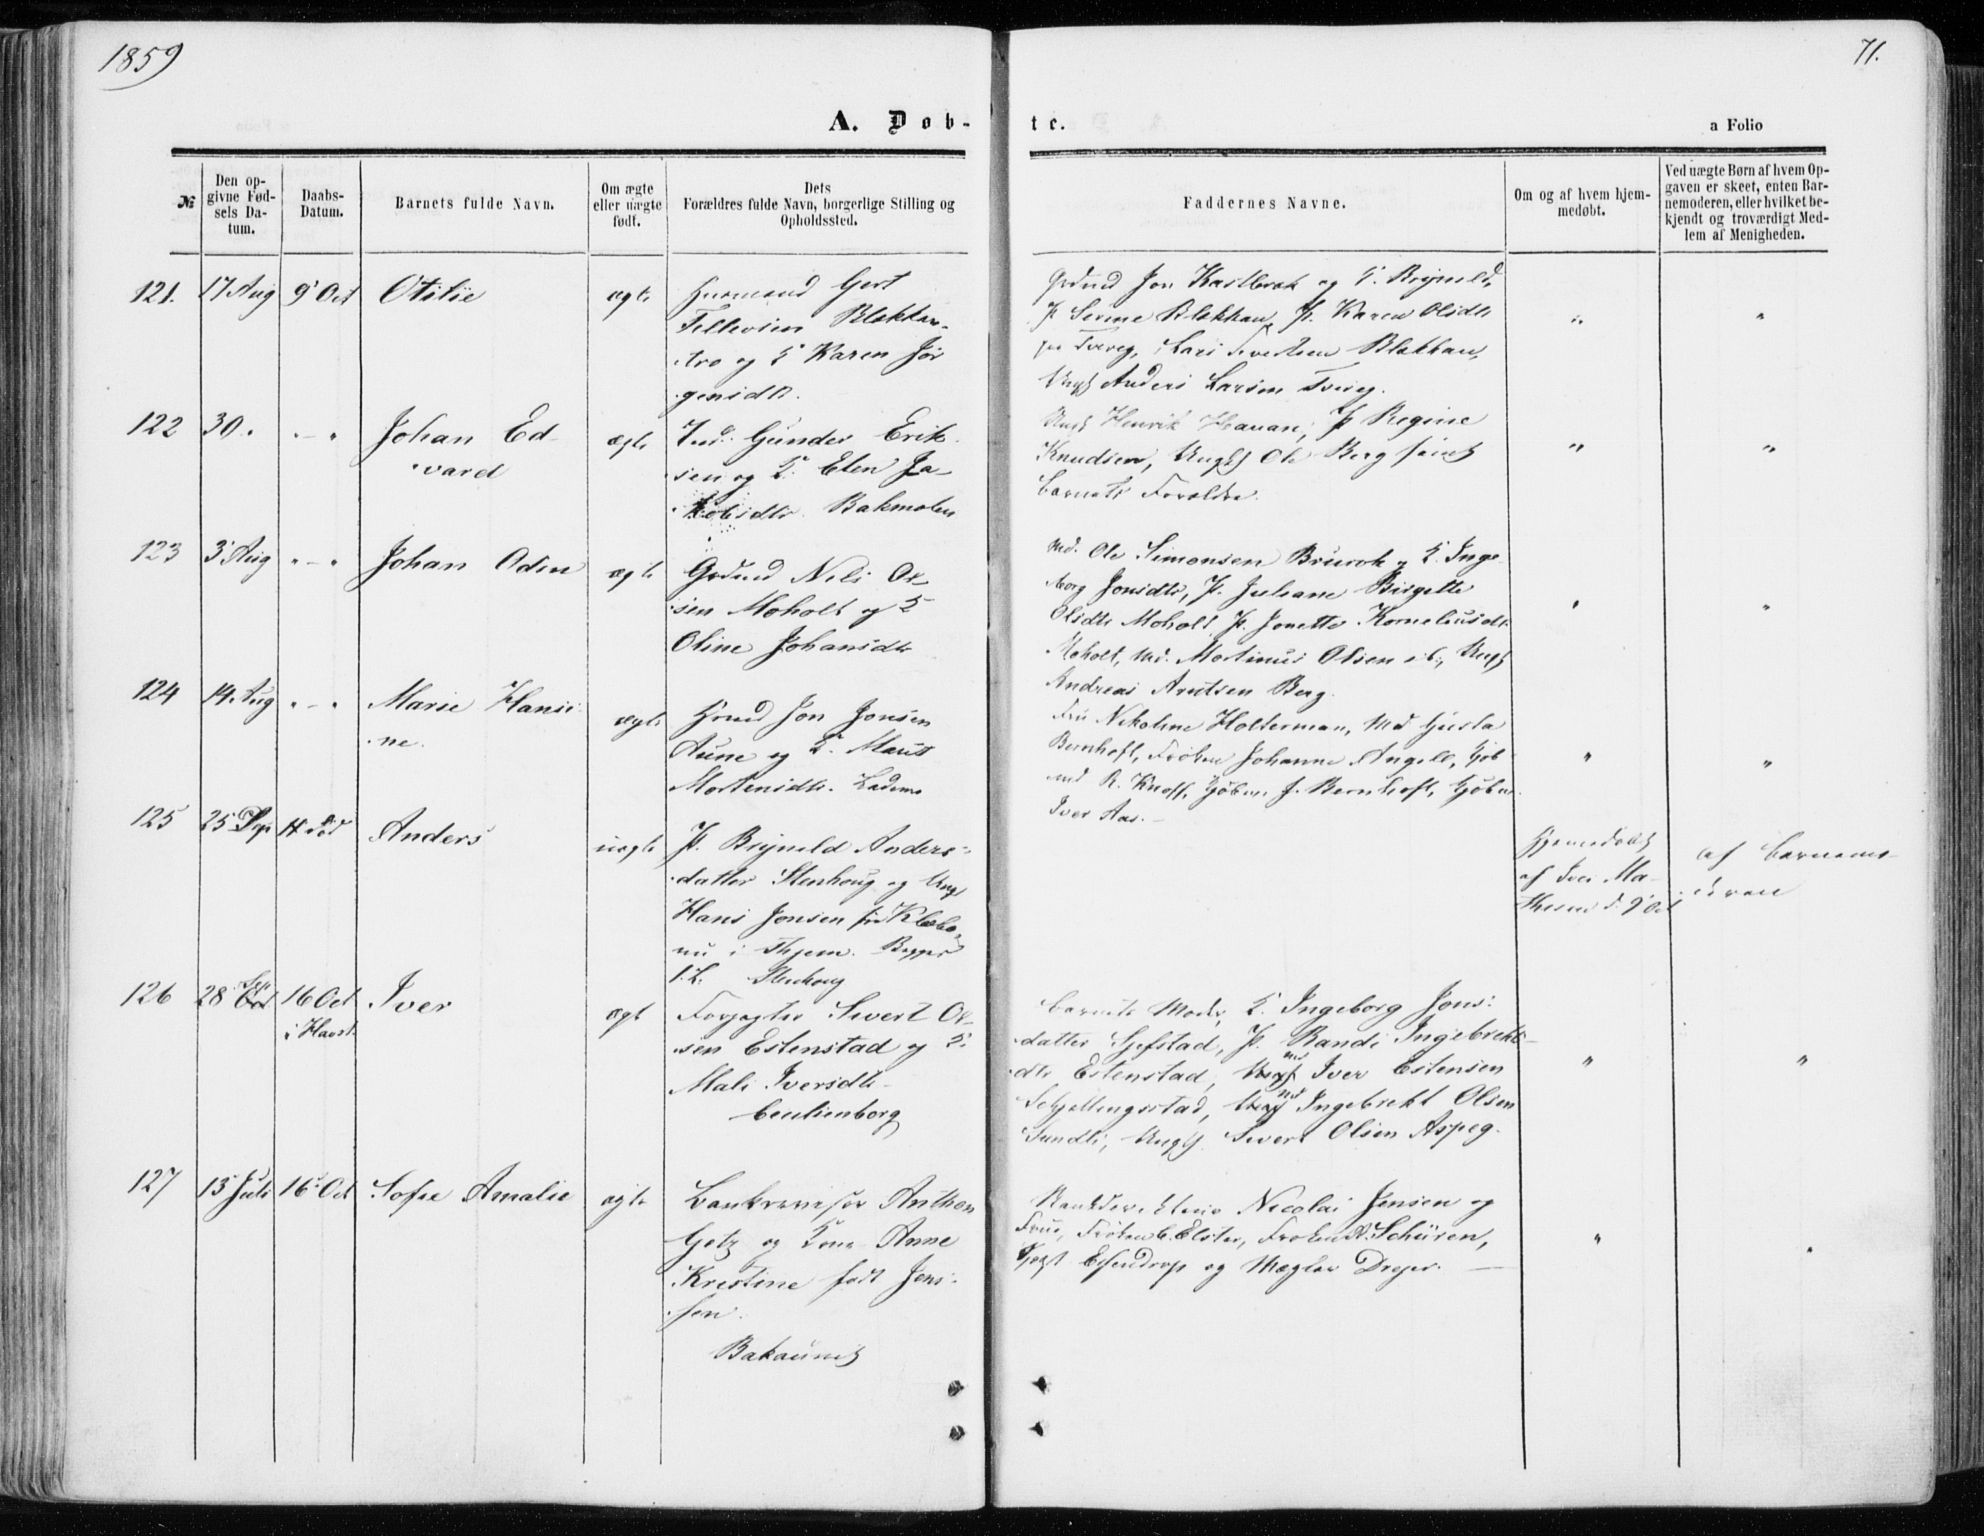 1859
71.
A. Døb-
te.
a Folio
№
Den op-
givne Fød-
sels Da-
tum.
Daabs-
Datum.
Barnets fulde Navn.
Om ægte
eller uægte
født.
Dets
Forældres fulde Navn, borgerlige Stilling og
Opholdssted.
Faddernes Navne.
Om og af hvem hjem-
medøbt.
Ved uægte Børn af hvem Op-
gaven er skeet, enten Bar-
nemoderen, eller hvilket be-
kjendt og troværdigt Med-
lem af Menigheden.
121. 17 Aug 9 Oct Otilie ægte
Huusmand Gert
Tellevsen Blakkan-
og K Karen Jør
gensdtr.
Jon og K. Brynild
P Serine Blakkan, P. Karen Olsdtr
Lars Blakkan,
Ungk Anders Larsen Tvereg.
" "
122 30. " - " Johan Ed-
vard
ægte
Ind. Gunder Erik-
sen og K. Elen Ja-
kobsdtr. Bakmolen
Ungk Henrik Havan, P Regine
Knudsen, Ungk Ole Berg samt
barnets Forældre.
" "
123 3 Aug " - " Johan Oden ægte
Grdmd Nils Ol-
sen Moholt og K
Oline Johansdtr
Md. Ole Simonsen Brurok og K. Inge
borg Jonsdtr, P. Juliane Birgette
Olsdtr Moholt P. Jonette Kornelius dtr
Moholt, Md. Martinus Olsen ib., Ungk
Andreas Arntsen Berg.
" "
124 14 Aug " - " Marie Hansi-
ne.
ægte
Hmd Jon Jonsen
Aune og K. Marit
Mortensdtr. Lademo
Fru Nikoline Holterman, Md Gusta
Bernhoft, Frøken Johanne Angell, Kjøb-
md R. Knoff, Kjøbm J. Bernhoft, Kjøbm
Iver Aas.
" "
125 25 Sep Anders uægte
P. Brynild Anders-
datter Stenhoug og Ung
Hans Jonsen fra Klæbo,
nu i Thjem. Begges
1. L. Stenhoug
Hjemmedøbt
af Iver Ma-
thesen d. 9 Oct
af barnemo-
deren
126 28 Sep 16 Oct
i Havst.
Iver ægt
Forpagter Sivert Ol-
sen Estenstad og K.
Mali Iversdtr
Cecilienborg
barnets Moder, K. Ingeborg Jons-
datter Sjefstad, P. Randi Ingebrikt-
dtr Estenstad, Md Iver Estensen
Schjellingsstad, Md Ingebrikt Olsen
Sundli, Ungk Sivert Olsen Aspeg.
" "
127 13 Juli 16 Oct Sofie Amalie ægte
Bankrevisor Anthon
Getz og Kone Anne
Kristine født Jens-
sen.
Bakaunet
Bankdirekteur Nicolai Jensen og
Frue, Frøken C. Elster, Frøken A. Schüren,
Esendrop og Mægler Dreyer.
" "